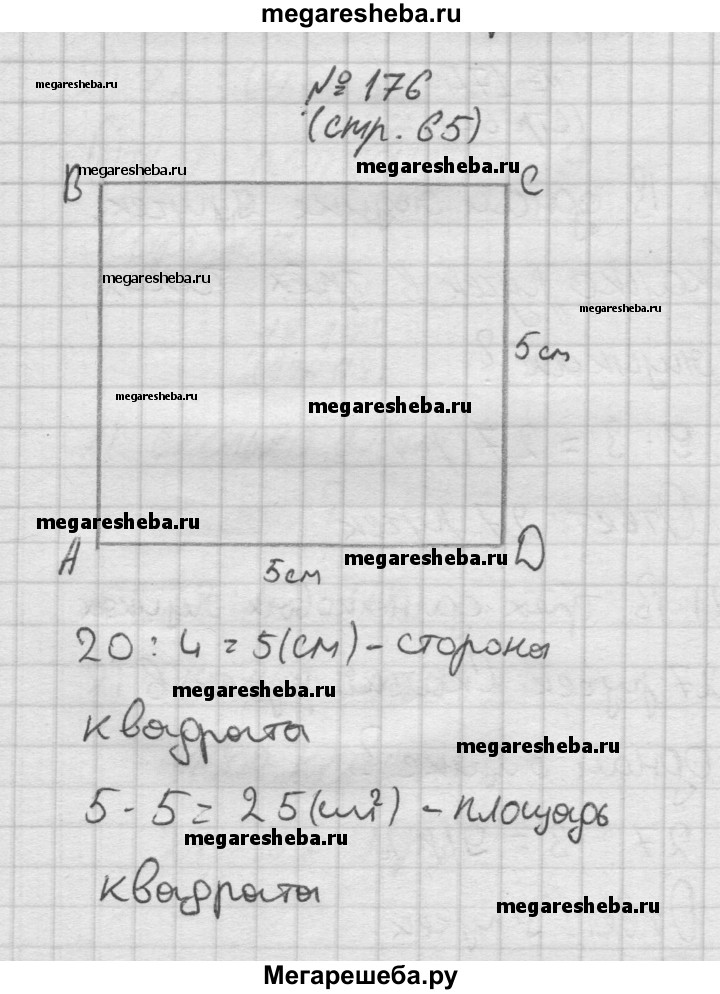 megaresheba.ru
megaresheba.ru
№ 176
(стр. 65)
B megaresheba.ru
megaresheba.ru C
megaresheba.ru
megaresheba.ru
5 см
megaresheba.ru
megaresheba.ru
megaresheba.ru
A
megaresheba.ru D
5 см
20 : 4 = 5 (см) - стороны
megaresheba.ru
квадрата
megaresheba.ru
5 · 5 = 25 (см²) - площадь
megaresheba.ru
квадрата
megaresheba.ru
Мегарешеба.ру